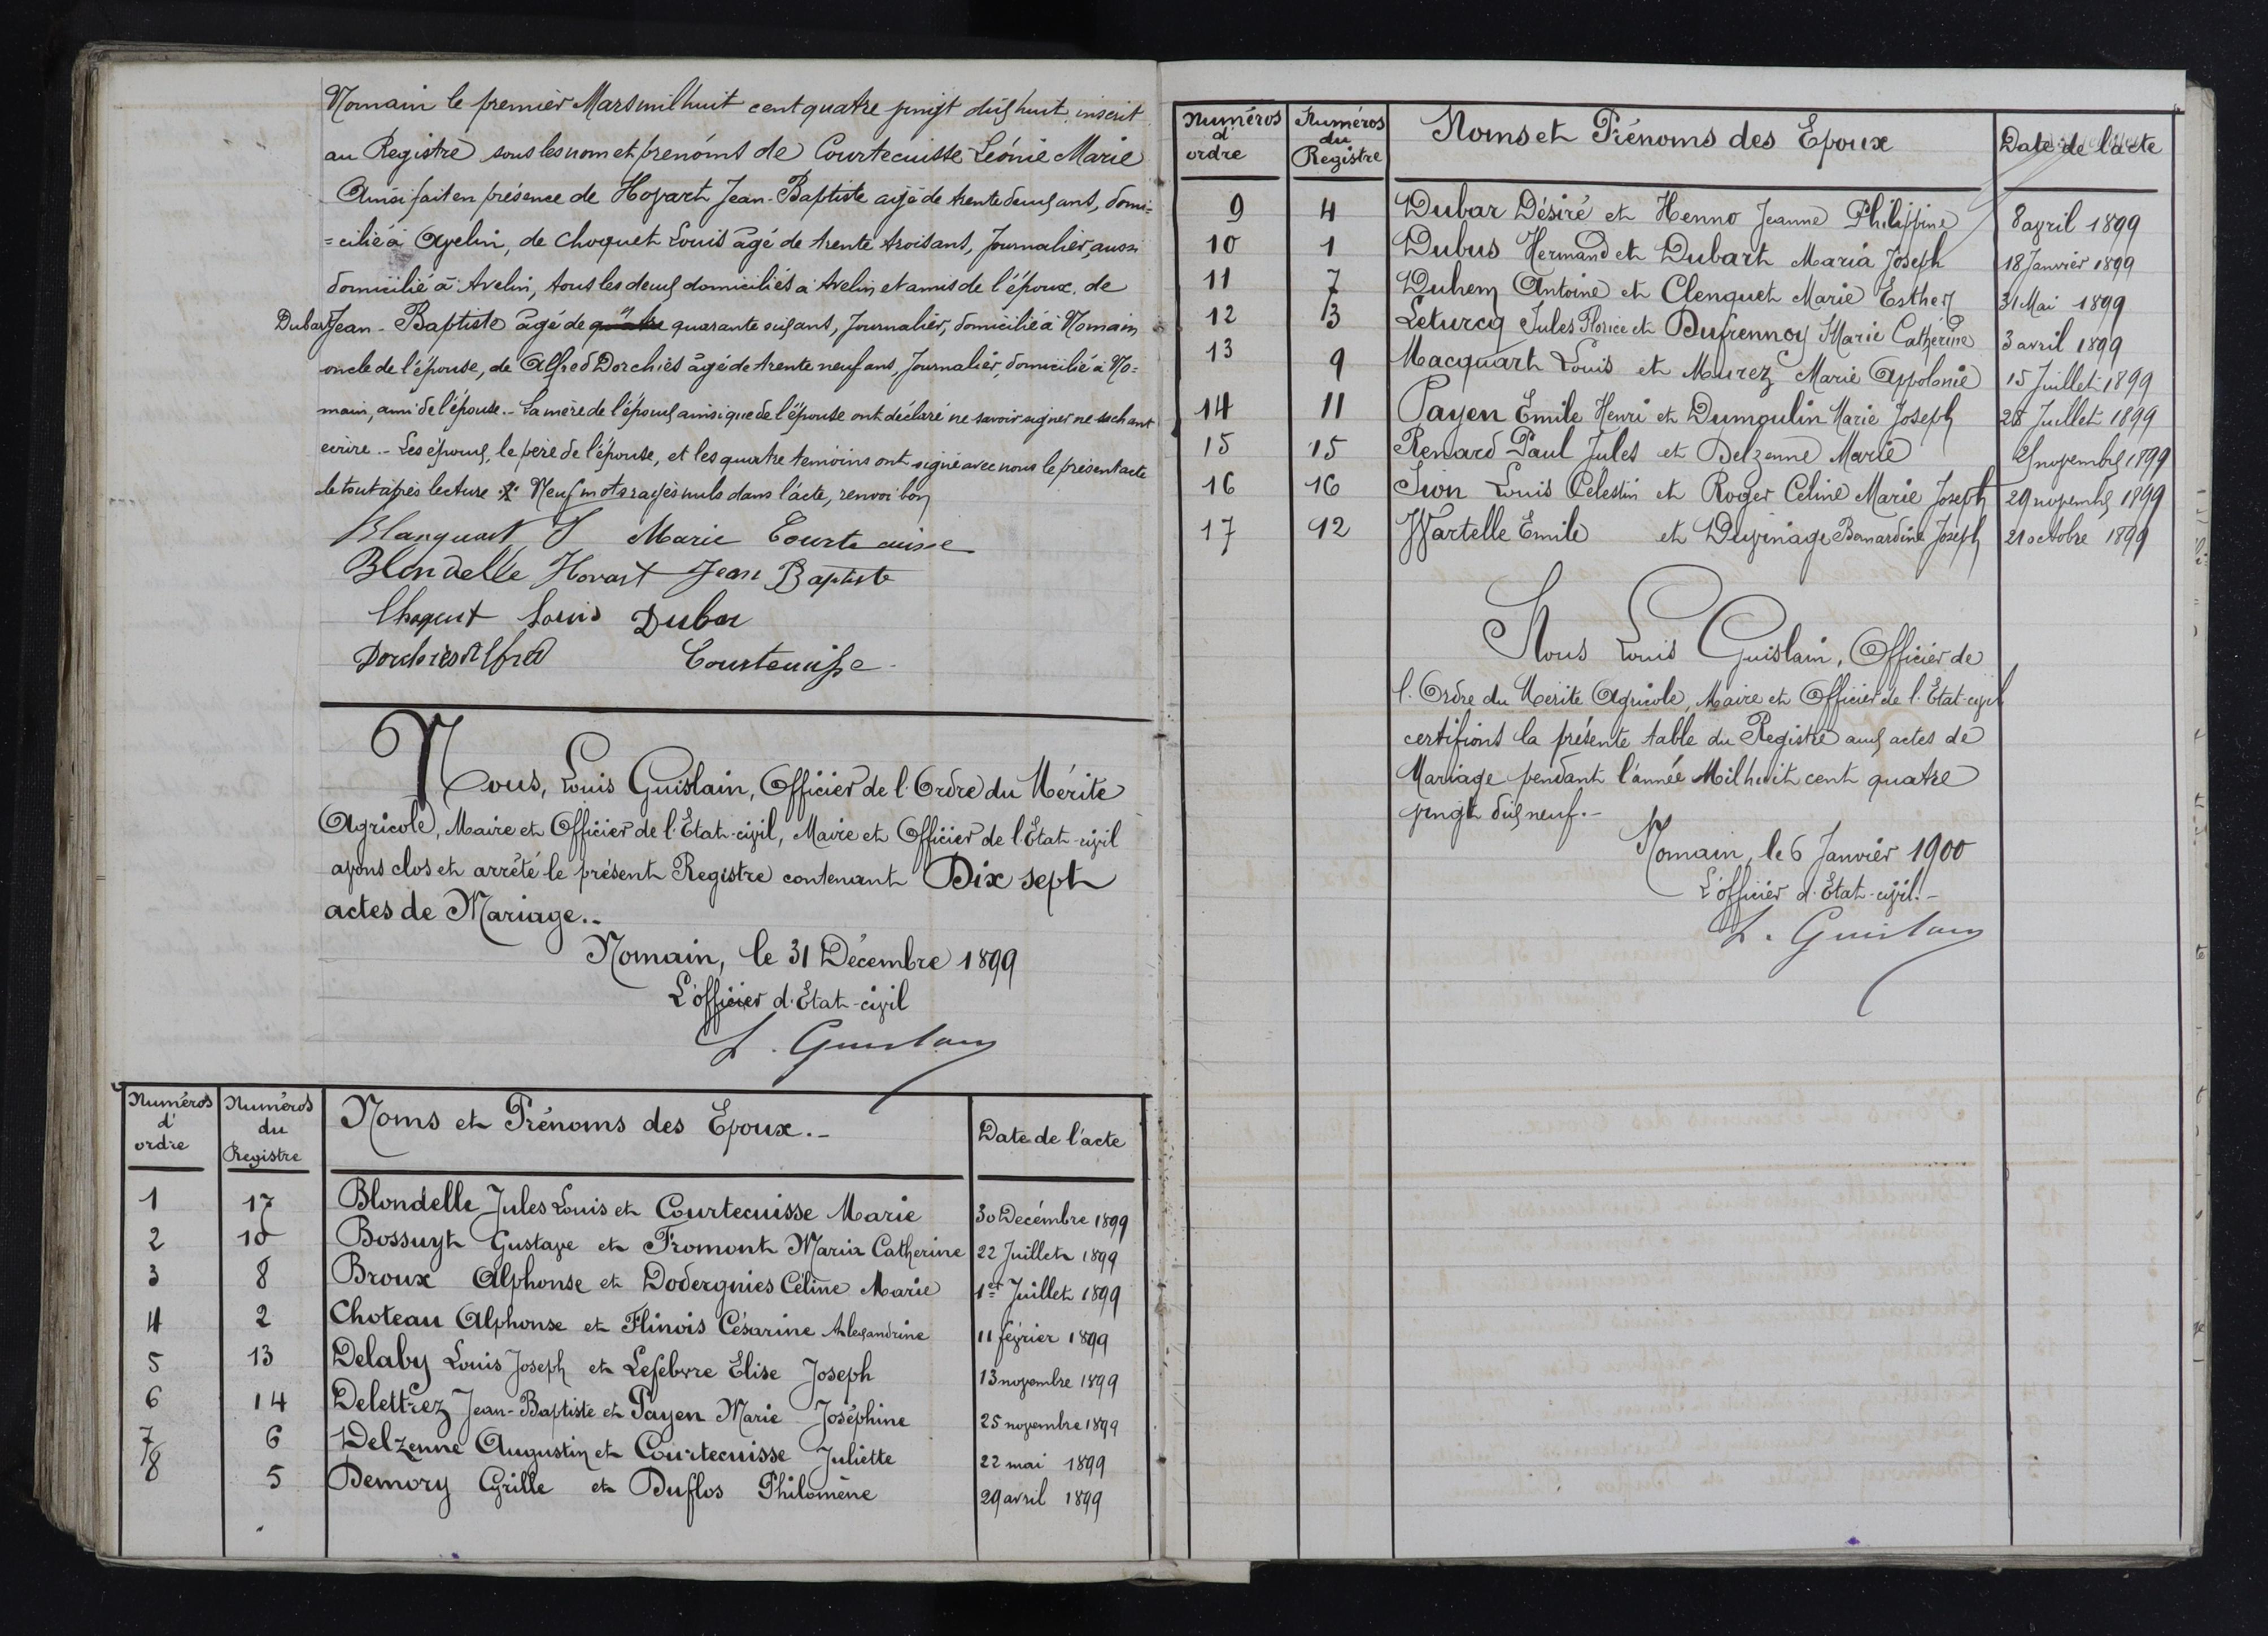 Nomain le premier Mars mil huit cent quatre vingt dix huit inscrit
au Registre sous les nom et prénoms de Courtecuisse Léonie Marie
Ainsi fait en présence de Hovart Jean-Baptiste agé de trente deux ans, domi-
=cilié à Avelin, de Choquet Louis âgé de trente trois ans, Journalier, aussi
domicilié à Avelin, tous les deux domiciliés à Avelin et amis de l'époux, de
Dubar Jean-Baptiste âgé de quatre quarante six ans, Journalier, domicilié à Nomain
oncle de l'épouse, de Alfred Dorchies âgé de trente neuf ans, Journalier, domicilié à No=
main, ami de l'épouse.- La mère de l'époux ainsi que de l'épouse ont déclaré ne savoir signer ne sachant
écrire.- Les époux, le père de l'épouse, et les quatre temoins ont signé avec nous le présent acte
le tout après lecture Neuf mots rayés nuls dans l'acte, renvoi bon
Blanquart J Marie Courtecuisse
Blondelle Hovart Jean Baptiste
Choquet Louis Dubar
Dorchies Alfred Courtecuisse
Nous, Louis Guislain, Officier de l'Ordre du Mérite
Agricole, Maire et Officier de l'Etat-civil, Maire et Officier de l'Etat-civil
avons clos et arrêté le présent Registre contenant Dix sept
actes de Mariage.-
Nomain, le 31 Décembre 1899
L'officier d'Etat-civil
L. Guislain
Numéros d'ordre Numéros du Registre Noms et Prénoms des Epoux.- Date de l'acte
1 17 Blondelle Jules Louis et Courtecuisse Marie 30 Decémbre 1899
2 10 Bossuyt Gustave et Fromont Maria Catherine 22 Juillet 1899
3 8 Broux Alphonse et Dodergnies Céline Marie 1er Juillet 1899
4 2 Choteau Alphonse et Flinois Césarine Alexandrine 11 février 1899
5 13 Delaby Louis Joseph et Lefebvre Elise Joseph 13 novembre 1899
6 14 Delettrez Jean-Baptiste et Payen Marie Joséphine 25 novembre 1899
7 6 Delzenne Augustin et Courtecuisse Juliette 22 mai 1899
8 5 Demory Cyrille et Duflos Philomène 29 avril 1899
Numéros d'ordre Numéros du Registre Noms et Prénoms des Epoux Date de l'acte
9 4 Dubar Désiré et Henno Jeanne Philippine 8 avril 1899
10 1 Dubus Hermand et Dubart Maria Joseph 18 Janvier 1899
11 7 Duhem Antoine et Clenquet Marie Esther 31 Mai 1899
12 3 Leturcq Jules Florice et Dufrennoy Marie Cathérine 3 avril 1899
13 9 Macquart Louis et Murez Marie Appolonie 15 Juillet 1899
14 11 Payen Emile Henri et Dumoulin Marie Joseph 28 Juillet 1899
15 15 Renard Paul Jules et Delzenne Marie novembre 1899
16 16 Sion Louis Célestin et Roger Celine Marie Joseph 29 novembre 1899
17 12 Wartelle Emile et Duvinage Bernardine Joseph 21 octobre 1899
Nous Louis Guislain, Officier de
l'Ordre du Mérite Agricole, Maire et Officier de l'Etat-civil
certifions la présente table du Registre aux actes de
Mariage pendant l'année Mil huit cent quatre
vingt dix neuf.-
Nomain, le 6 Janvier 1900
L'officier d'Etat-civil.-
L. Guislain